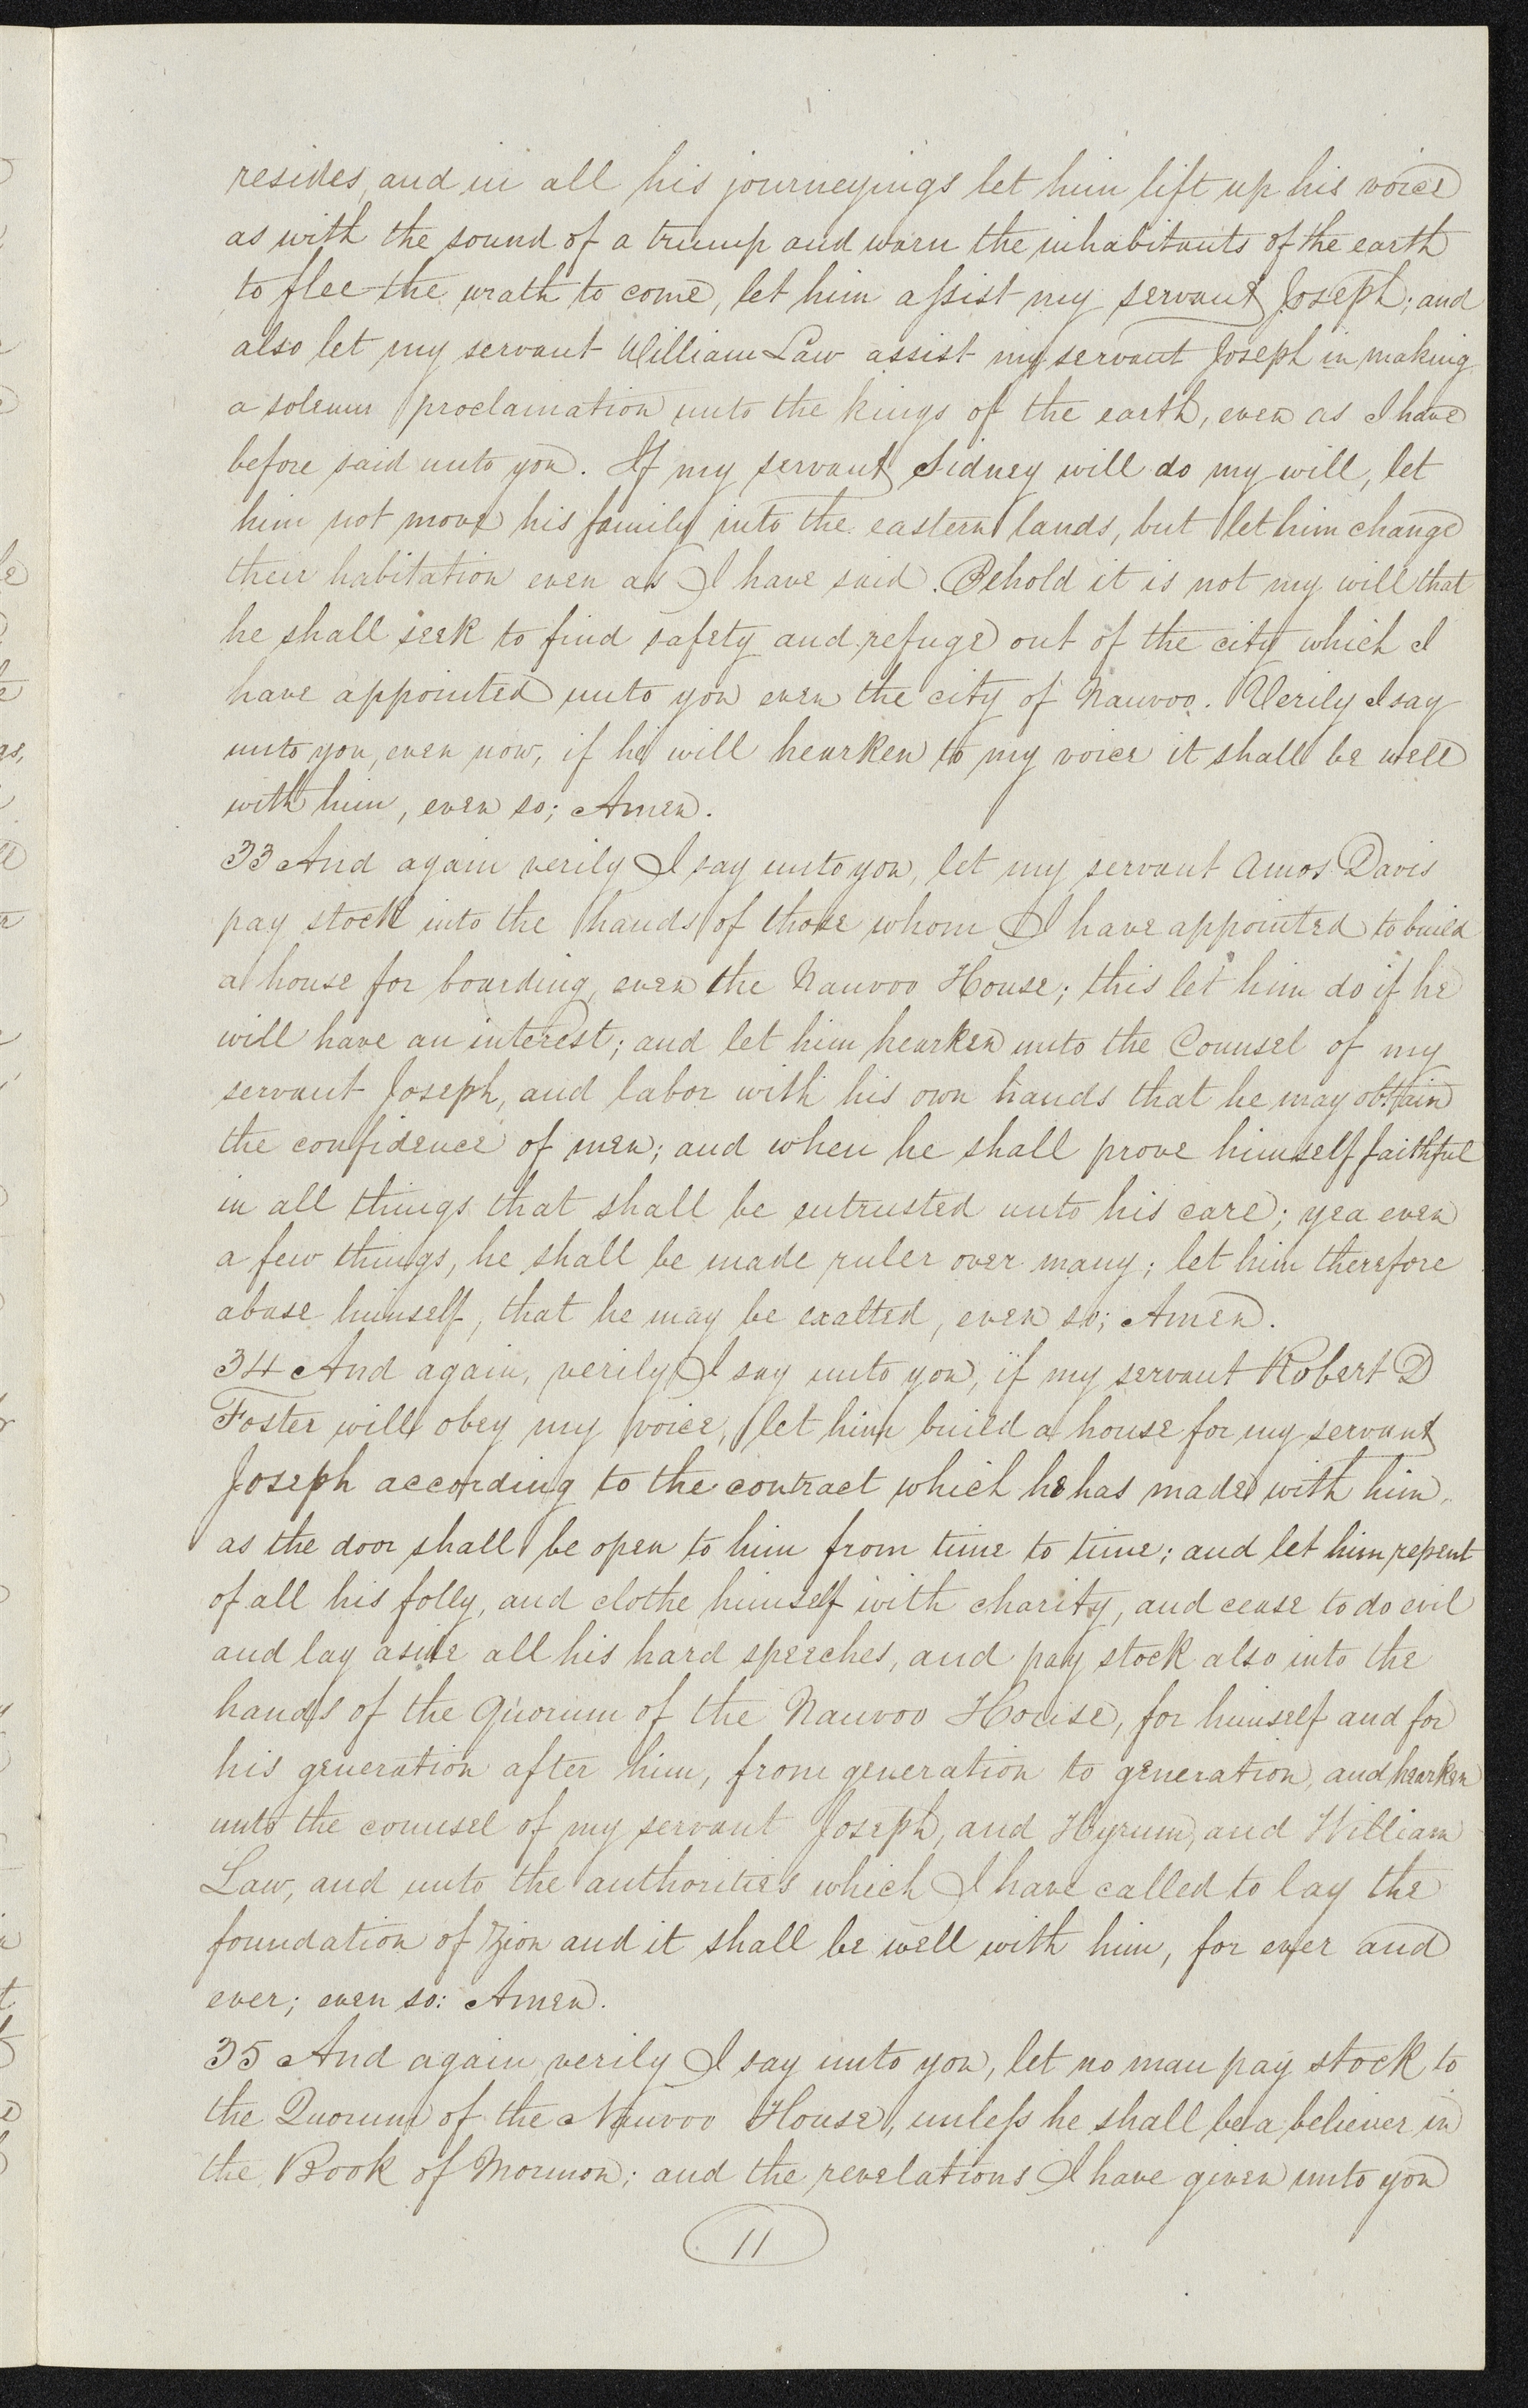 resides, and in all his journeyings let him lift up his voice
as with the sound of a trump and warn the inhabitants of the earth
to flee the wrath to come, let him assist my servant Joseph; and
also let my servant William Law assist my servant Joseph in making
a solemn proclamation unto the kings of the earth, even as I have
before said unto you. If my servant Sidney will do my will, let
him not move his family into the eastern lands, but let him change
their habitation even as I have said. Behold it is not my will that
he shall seek to find safety and refuge out of the city which I
have appointed unto you even the city of Nauvoo. Verily I say
unto you, even now, if he will hearken to my voice it shall be well
with him, even so; Amen.
33 And again verily I say unto you, let my servant Amos Davis
pay stock into the hands of those whom I have appointed to build
a house for boarding, even the Nauvoo House; this let him do if he
will have an interest; and let him hearken unto the Counsel of my
servant Joseph, and labor with his own hands that he may obtain
the confidence of men; and when he shall prove himself faithful
in all things that shall be entrusted unto his care; yea even
a few things, he shall be made ruler over many; let him therefore
abase himself, that he may be exalted, even so; Amen.
34 And again, verily I say unto you, if my servant Robert D
Foster will obey my voice, let him build a house for my servant
Joseph according to the contract which he has made with him,
as the door shall be open to him from time to time; and let him repent
of all his folly, and clothe himself with charity, and cease to do evil
and lay aside all his hard speeches, and pay stock also into the
hands of the Quorum of the Nauvoo House, for himself and for
his generation after him, from generation to generation, and hearken
unto the counsel of my servant Joseph, and Hyrum, and William
Law, and unto the authorities which I have called to lay the
foundation of Zion and it shall be well with him, for ever and
ever; even so: Amen.
35 And again verily I say unto you, let no man pay stock to
the Quorum of the Nauvoo House, unless he shall be a believer in
the Book of Mormon; and the revelations I have given unto you
11